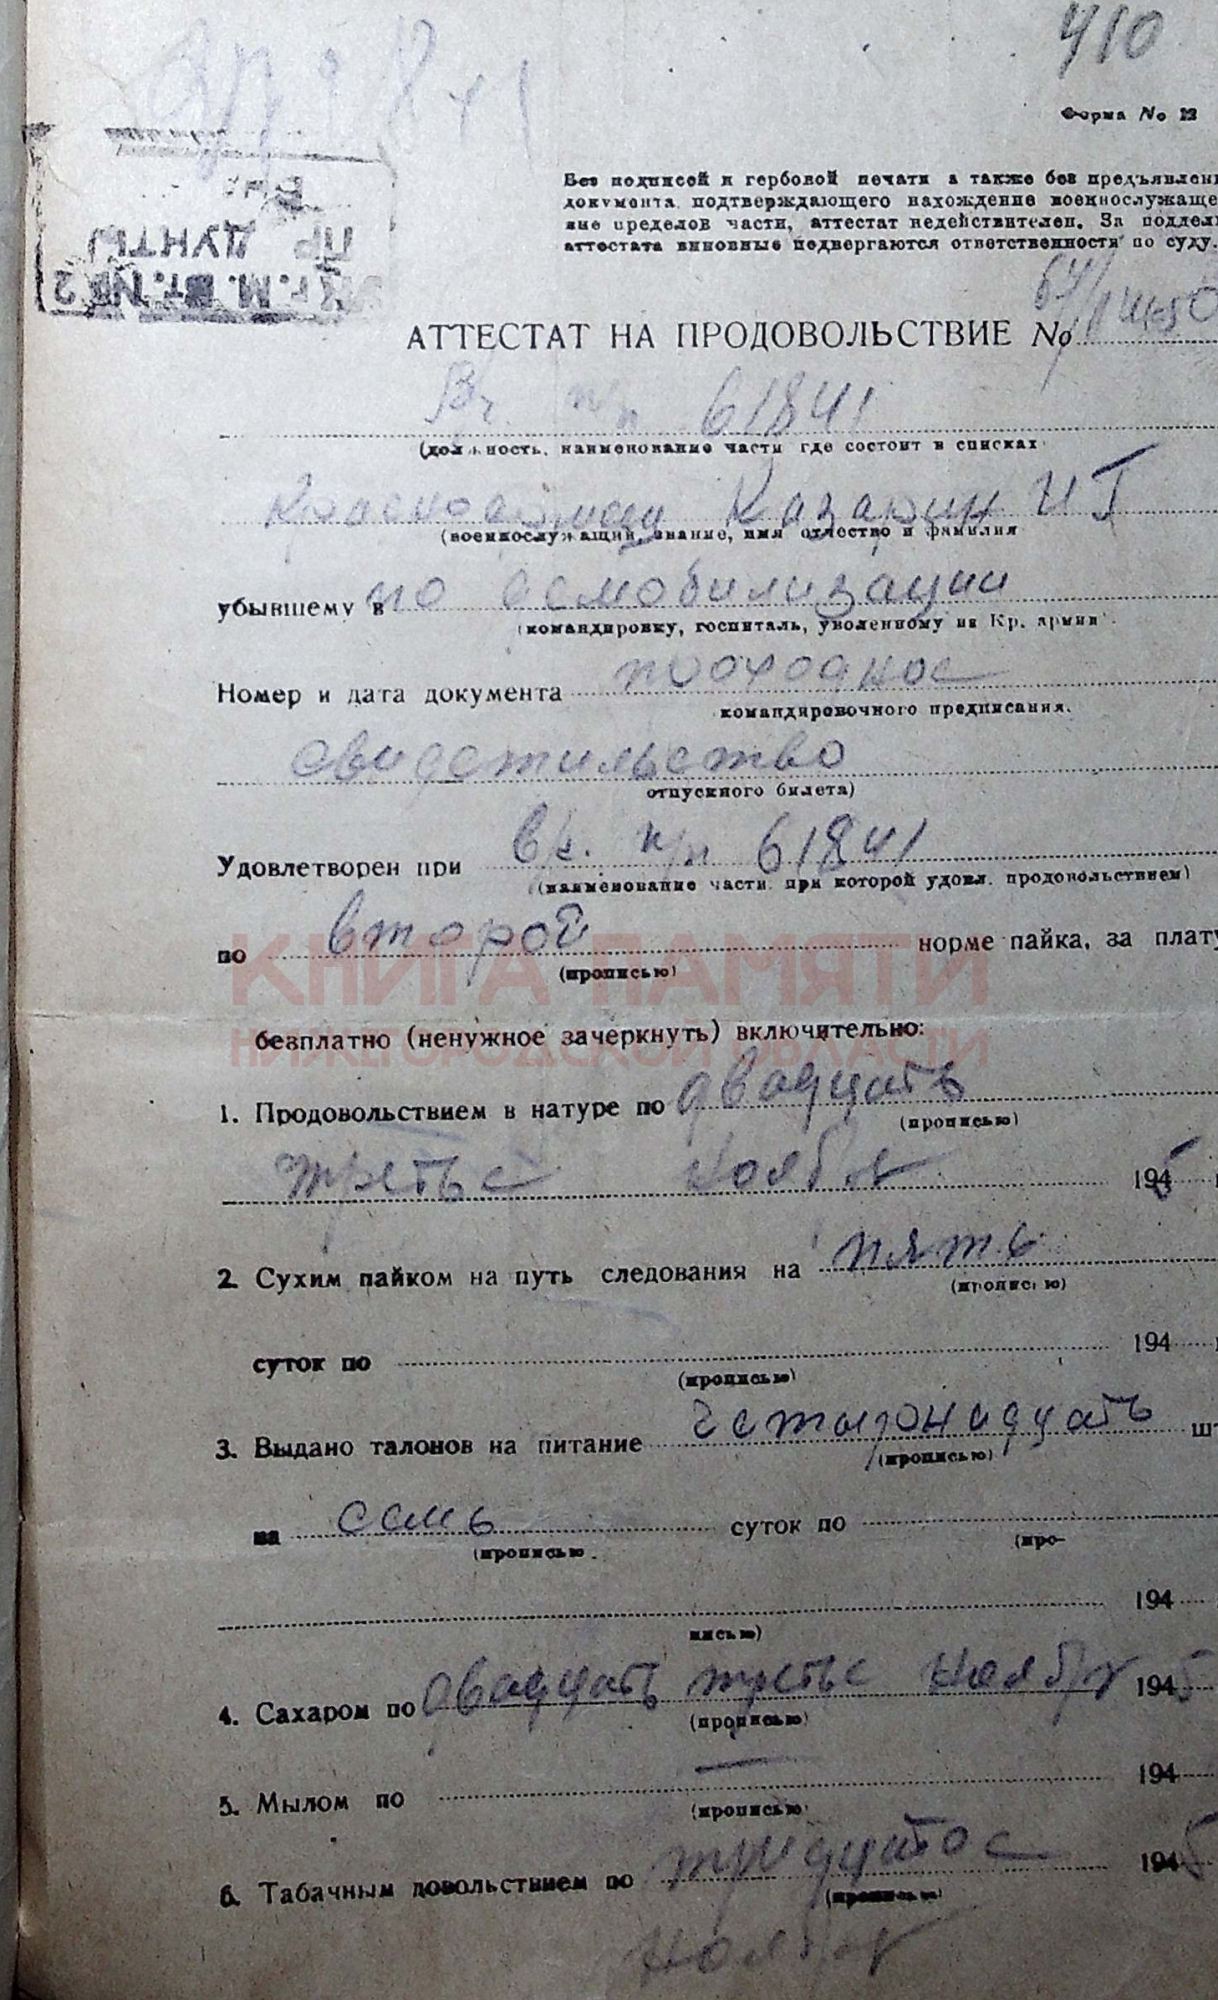 410
Форма № 12
Без подписей и гербовой печати а также без предъявлени
документа, подтверждающего нахождение военнослужаще
вне пределов части, аттестат недействителен. За поддел
аттестата виновные подвергаются ответственности по суду.
г. М. шт. № 2
АТТЕСТАТ НА ПРОДОВОЛЬСТВИЕ №
Вч. п/п 61841
(должность, наименование части где состоит в списках
Красноармеец Казарин И Г
(военнослужащий, звание, имя отчество и фамилия
убывшему в по демобилизации
(командировку, госпиталь, уволенному из Кр. армии).
Номер и дата документа проходное
командировочного предписания.
свидетельство
отпускного билета)
Удовлетворен при в/ч. п/п 61841
(наименование части, при которой удовл. продовольствием)
по второй норме пайка, за плату
(прописью)
КНИГА ПАМЯТИ
НИЖЕГОРОДСКОЙ ОБЛАСТИ
безплатно (ненужное зачеркнуть) включительно:
1. Продовольствием в натуре по двадцать
(прописью)
третье ноября 1945
2. Сухим пайком на путь следования на пять
(прописью)
суток по 194
(прописью)
3. Выдано талонов на питание четырнадцать шт
(прописью)
на семь суток по
(прописью. (про-
194
писью)
4. Сахаром по двадцать третье ноября 1945
(прописью)
5. Мылом по — 194
(прописью)
6. Табачным довольствием по тридцатое 1945
(прописью)
ноября